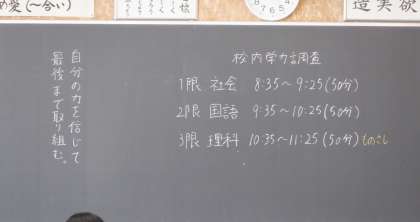 め愛(〜合い)
造実欲
校内学力調査
1限 社会 8:35〜9:25(50分)
2限 国語 9:35〜10:25(50分)
3限 理科 10:35〜11:25(50分)ものさし
自分の力を信じて
最後まで取り組む。